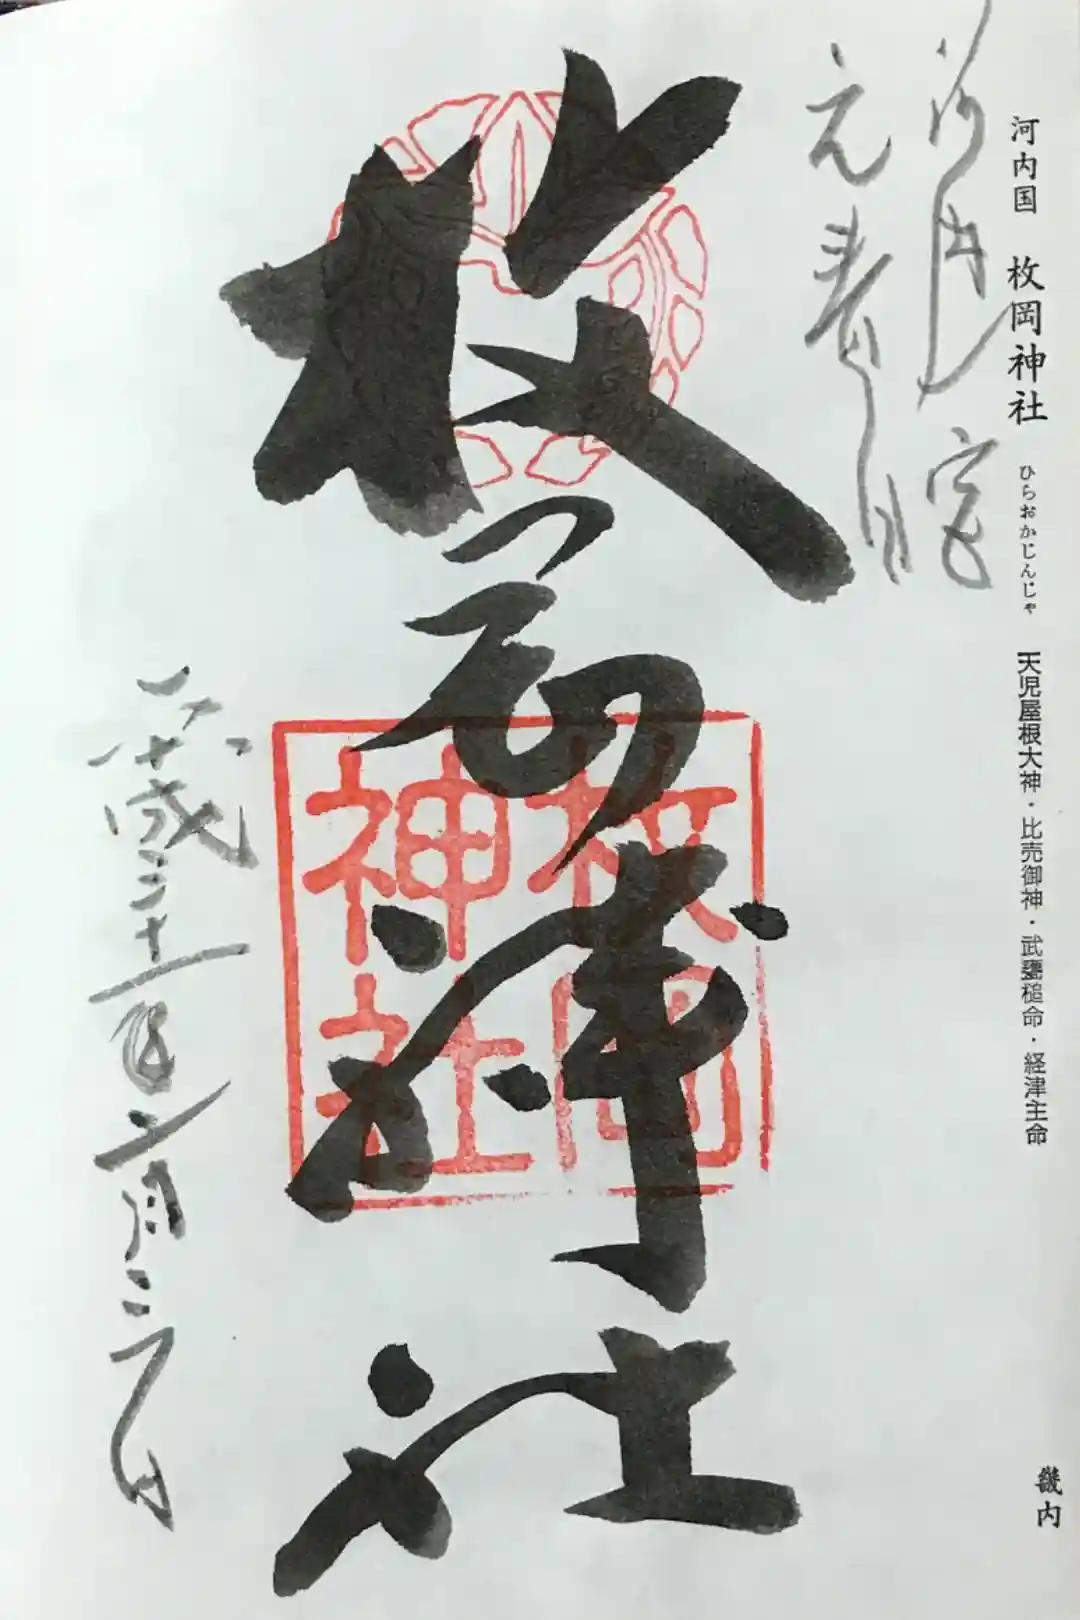 河内国 枚岡神社 ひらおかじんじゃ 天児屋根大神・比売御神・武甕槌命・経津主命
畿内
河内一宮
元春日
枚岡神社
枚岡
神社
平成三十一年二月三日